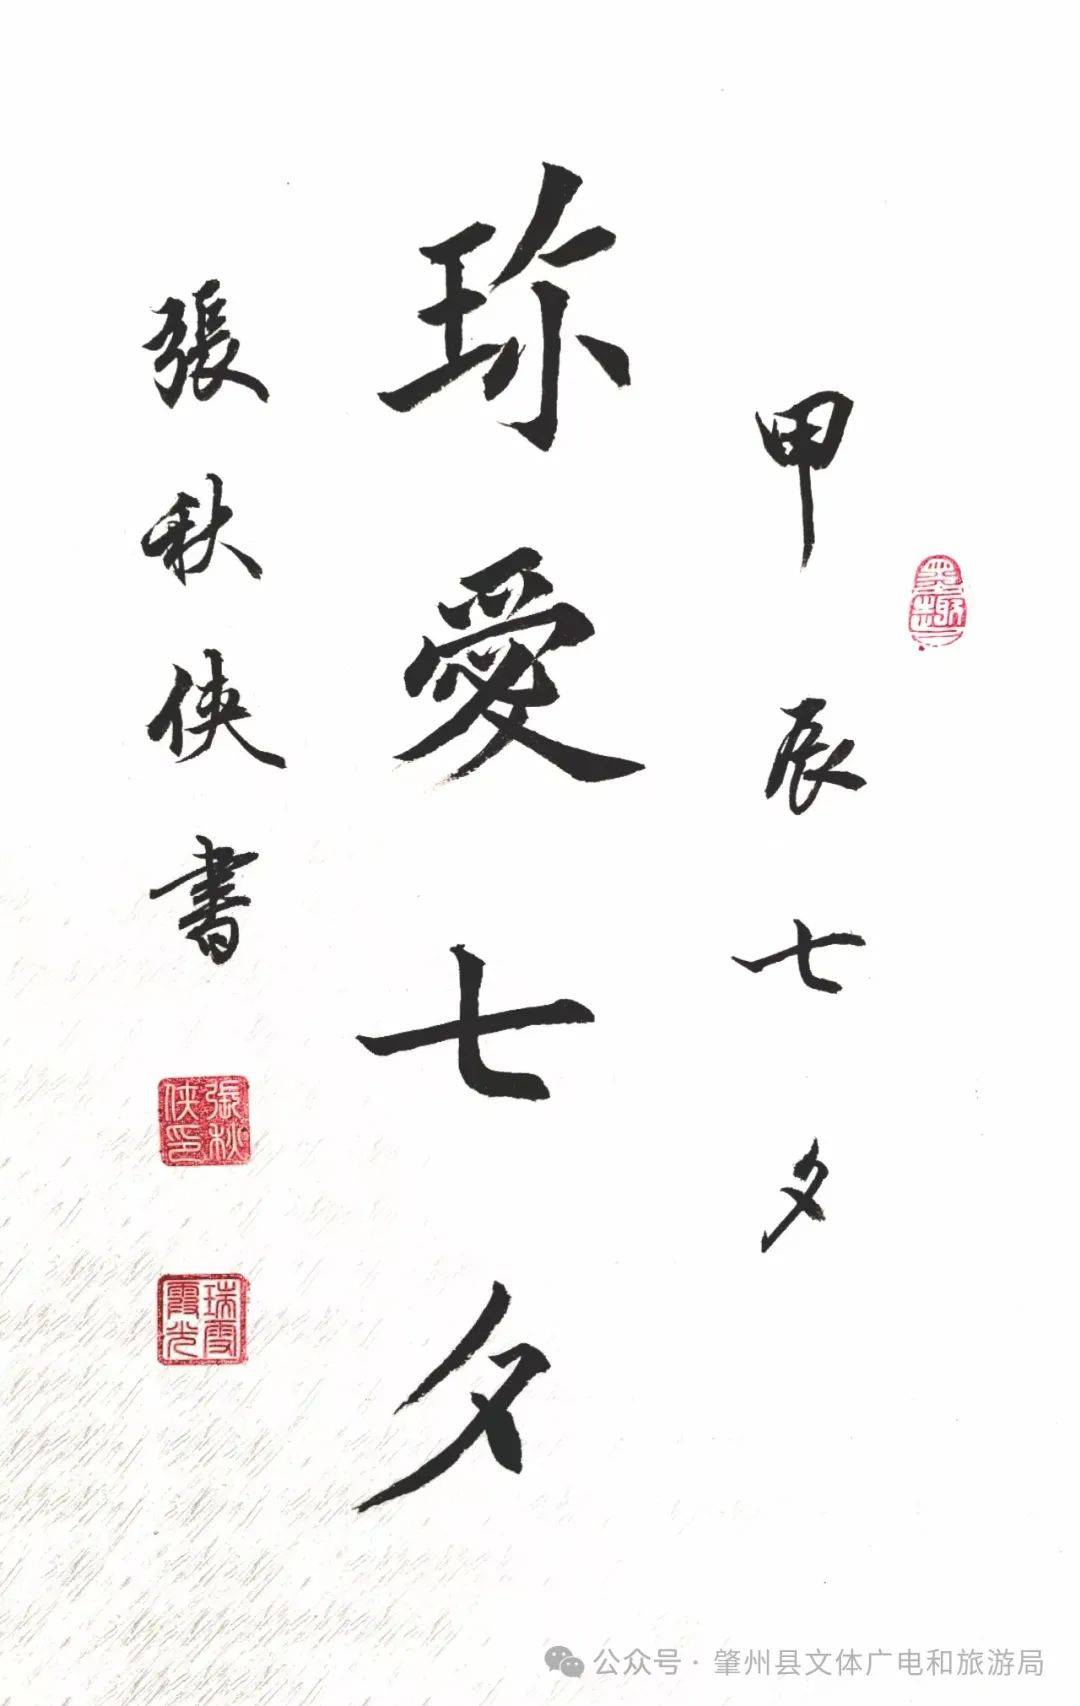 甲辰七夕
墨趣
珎愛七夕
張秋侠書
張秋侠印
瑞雪霞光
公众号·肇州县文体广电和旅游局